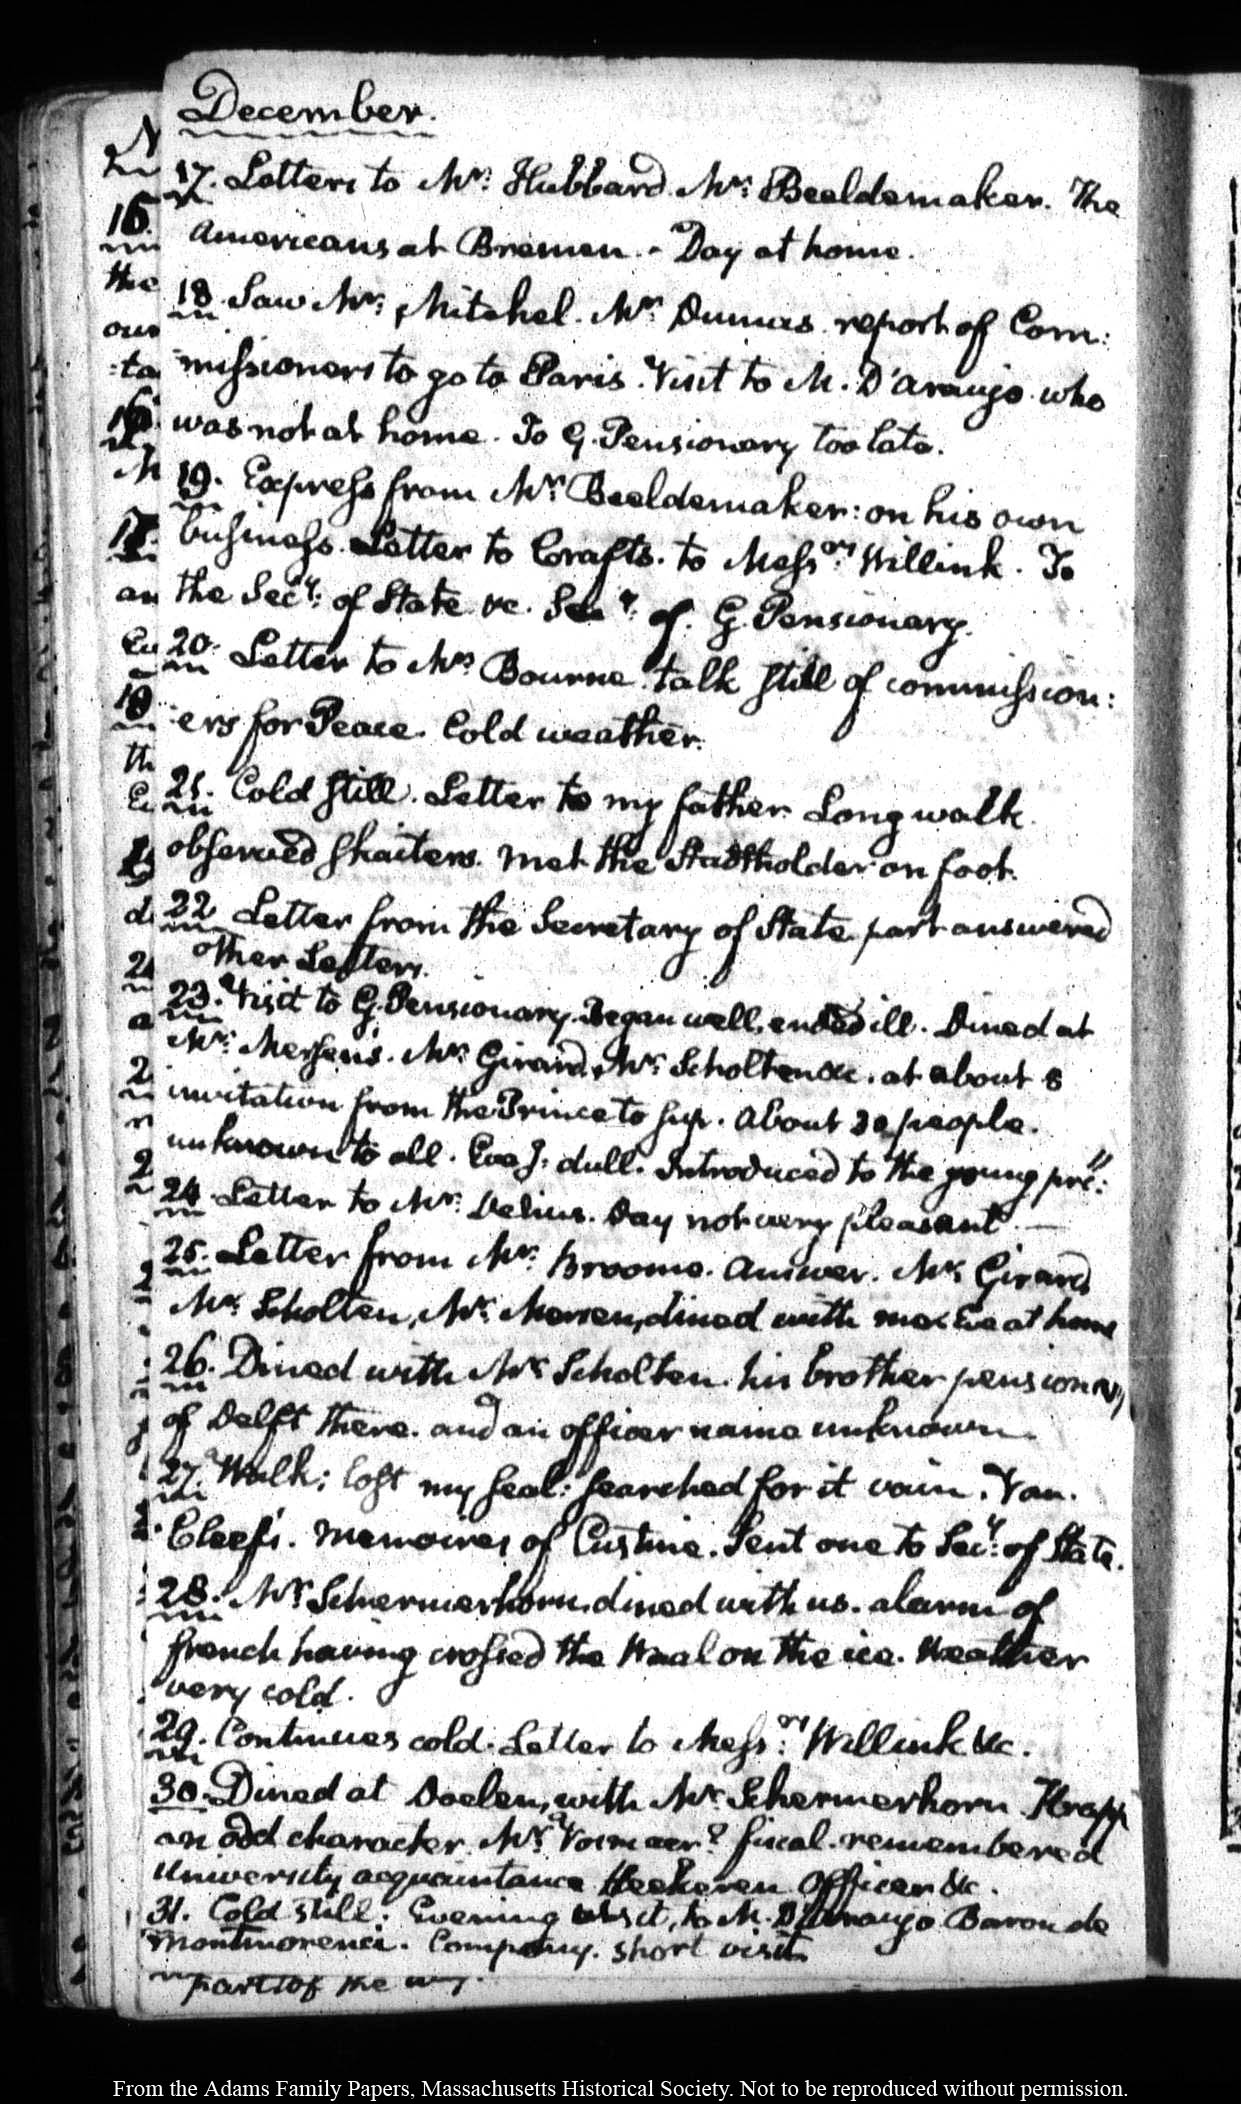 December.
17. Letters to Mr: Hubbard. Mr: Beeldemaker. The
Americans at Bremen. - Day at home.
18. Saw Mr: Mitchel. Mr: Dumas. report of Com:
missioners to go to Paris. Visit to M. D'Araujo who
was not at home. To G. Pensionary too late.
19. Express from Mr: Beeldemaker: on his own
business. Letter to Crafts. to Messrs: Willink. To
the Secy: of State &c. Secy: of G. Pensionary.
20. Letter to Mr: Bourne. talk still of commission:
:ers for Peace. Cold weather.
21. Cold still. Letter to my father. Long walk.
observed skaiters. Met the Stadtholder on foot.
22. Letter from the Secretary of State part answered
other Letters.
23. Visit to G. Pensionary. Began well, ended ill. Dined at
Mr: Mersen's. Mr: Girard, Mr: Scholten &c. at about 8
invitation from the Prince to sup. About 30 people.
unknown to all. Eveg: dull. Introduced to the young pre:
24. Letter to Mr: Delius. Day not very pleasant. —
25. Letter from Mr: Broome. Answer. Mr: Girard
Mr: Scholten, Mr: Mersen, dined with me. Eve at home
26. Dined with Mr: Scholten. his brother pensionary
of Delft there. and an officer name unknown.
27. Walk; lost my seal: searched for it vain. Van.
Cleef's. Memoires of Custine. Sent one to Secy: of State.
28. Mr: Schermerhorn dined with us. alarm of
french having crossed the Waal on the ice. Weather
very cold.
29. Continues cold. Letter to Messrs: Willink &c.
30. Dined at Doelen, with Mr: Schermerhorn. Krapp
an odd character. Mr: fiscal. remembered
University acquaintance Heekeren Officer &c.
31. Cold still. Evening visit, to M. D'Araujo Baron de
Montmorenci. Company. short visit
part of the